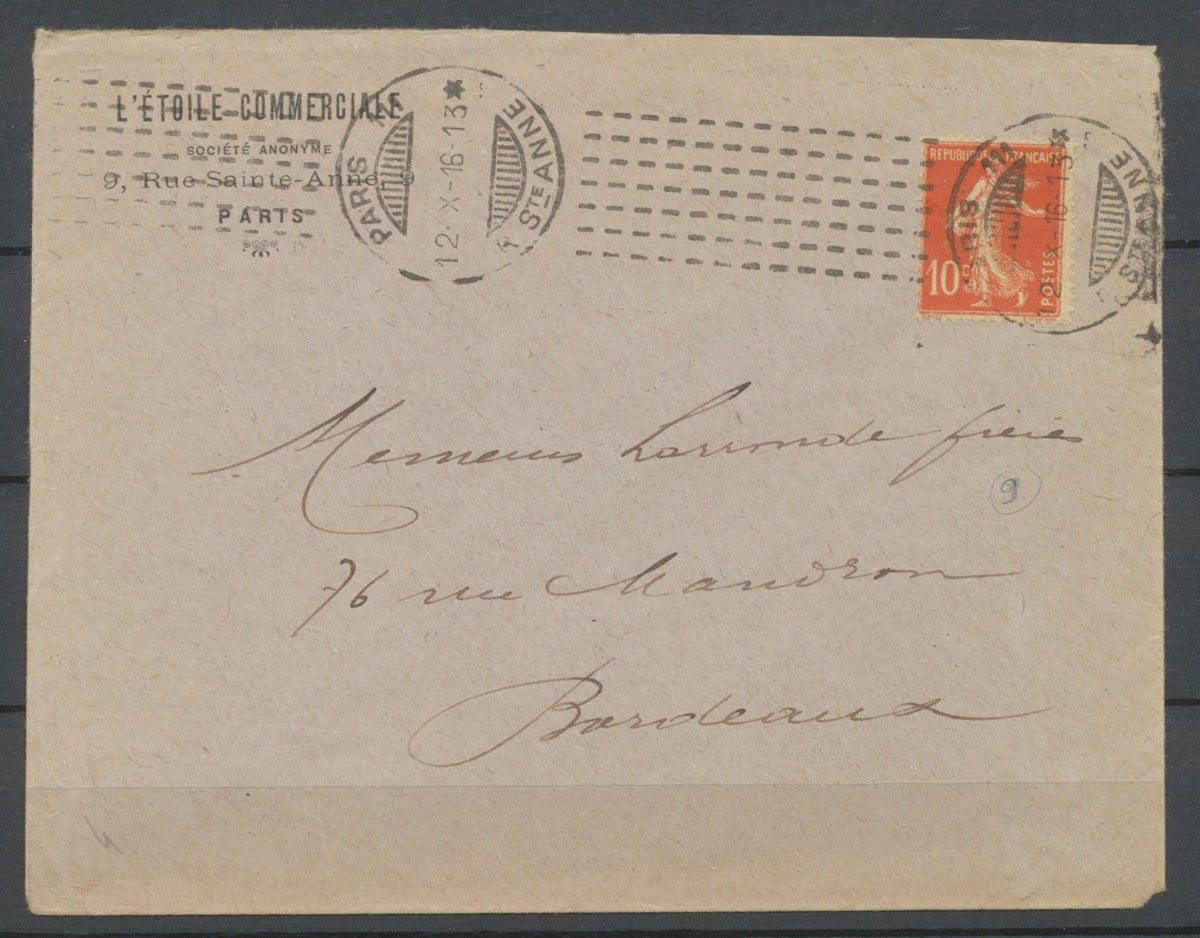 L'ÉTOILE COMMERCIALE
SOCIÉTÉ ANONYME
9, Rue Sainte-Anne, 9
PARIS
PARIS
12-X-16-13*
R. STE ANNE
REPUBLIQUE FRANCAISE
10c
POSTES
PARIS
12-X-16-13*
STE ANNE
Messieurs Larronde frères
9
76 rue Mandron
Bordeaux